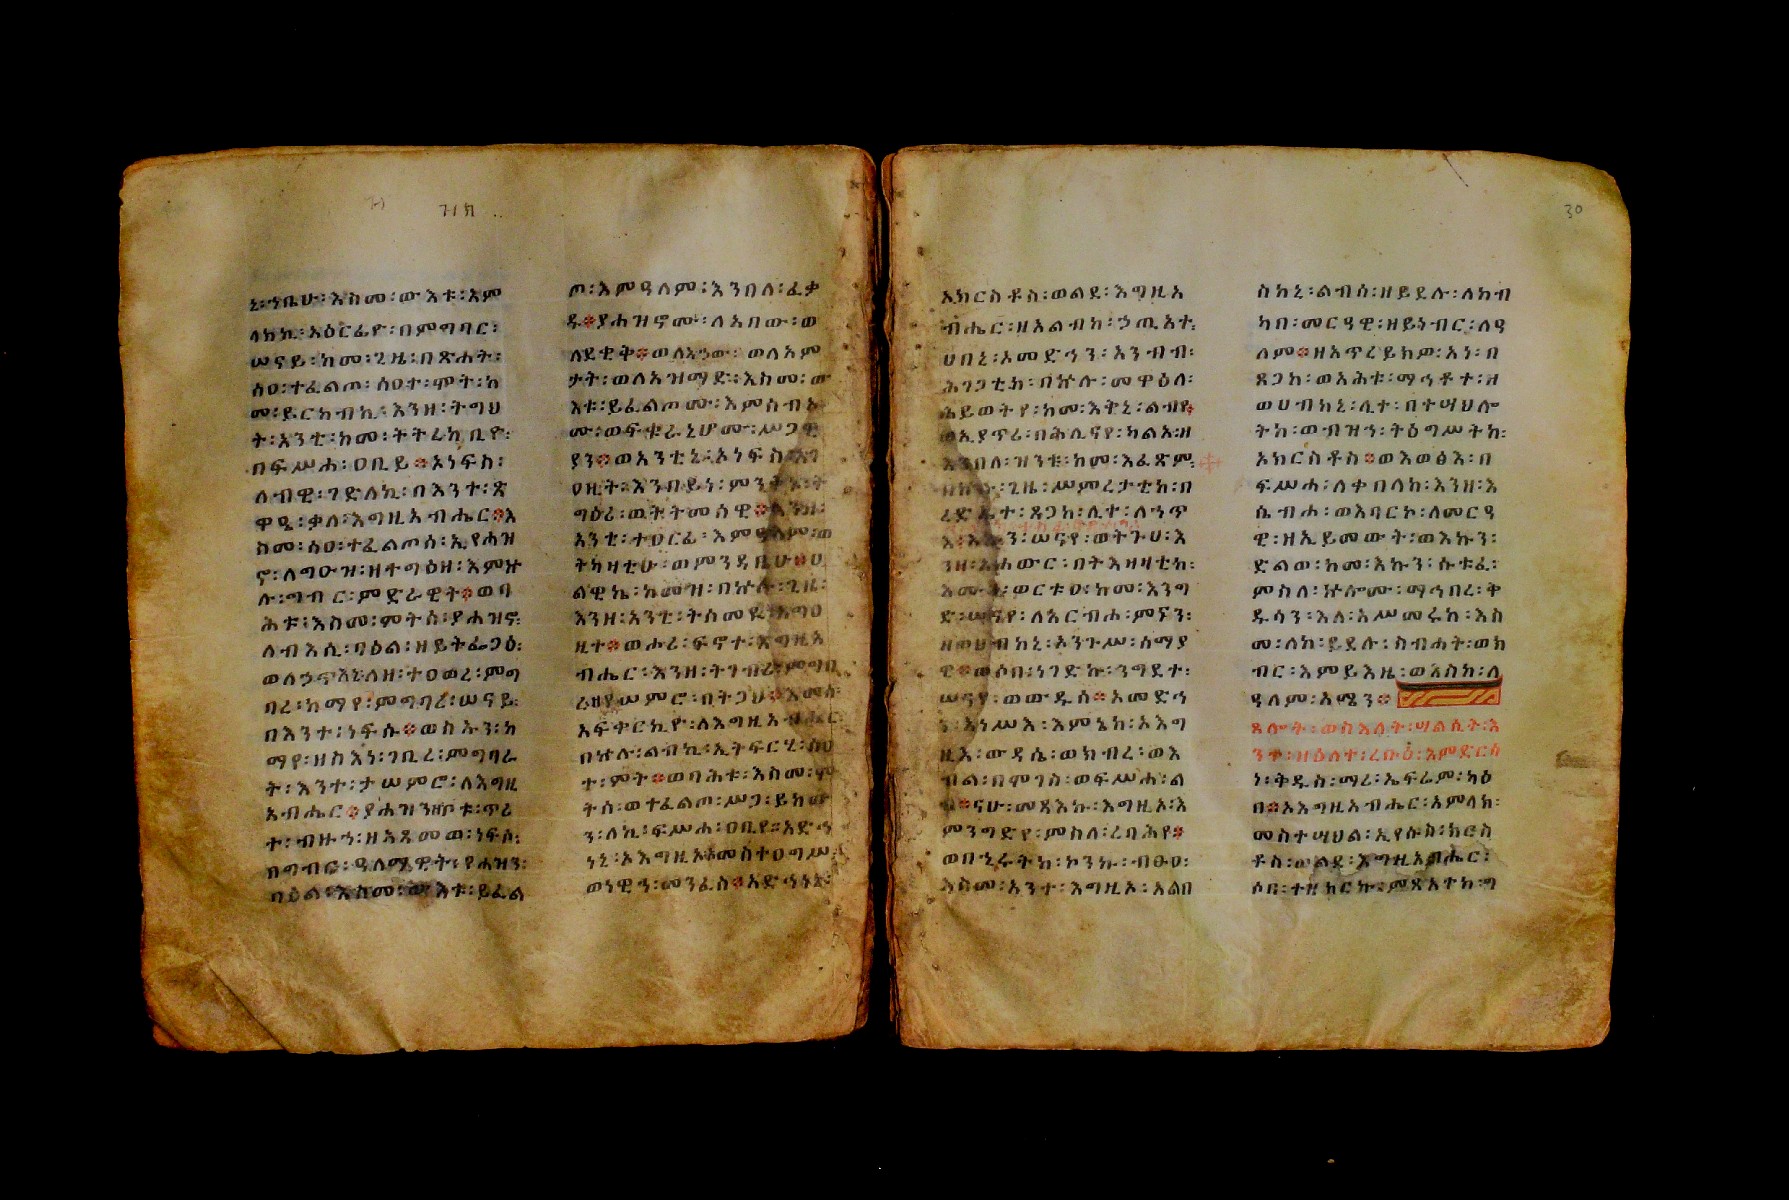 ለክኪ፡አዕርፊዮ፡በምግባር፡
ሠናይ፡ከመ፡ጊዜ፡በጽሐት፡
ሰዐ፡ተፈልጦ፡ሰዐተ፡ሞት፡ከ
መ፡ይርከብኪ፡እንዘ፡ትግህ
ት፡አንቲ፡ከመ፡ትትፌከቢዮ፡
በፍሥሐ፡ዐቢይ፨ኦነፍስ፡
ለብዊ፡ገድለኪ፡በእንተ፡ጽ
ዋዔ፡ቃለ፡እግዚአብሔር፨እ
ስመ፡ሰዐ፡ተፈልጦሰ፡ኢየሐዝ
ኖ፡ለግዑዝ፡ዘተግዕዘ፡እምኵ
ሉ፡ግብር፡ምድራዊት፨ወባ
ሕቱ፡እስመ፡ምትሰ፡ያሐዝኖ፡
ለብእሲ፡ባዕል፡ዘይትፌጋዕ፡
በረ፡ከማየ፡ምግባረ፡ሠናይ፡
በእንተ፡ነፍሱ፨ወስኡን፡ከ
ማየ፡ዘስእነ፡ገቢረ፡ምግባራ
ት፡እንተ፡ታሠምሮ፡ለእግዚ
አብሔር፨ያሐዝን
ተ፡ብዙኅ፡ዘአጸመወ፡ነፍሰ፡
በግብሩ፡ዓለማዊት፡የሐዝን፡
ባዕል፡እስመ፡ውእቱ፡ይፈል
ጦ፡እምዓለም፡እንበለ፡ፈቃ
ዱ፨ያሐዝኖሙ፡ለአበው፡ወ
ለደቂቅ፨ወለአኃው፡ወለአም
ታት፡ወለአዝማድ፡እስመ፡ው
እቱ፡ይፈልጦሙ፡እምስብአ
ሙ፡ወፍቁራኒሆሙ፡ሥጋዊ
ያን፨ወአንቲኒ፡ኦነፍስ፡
ዐዚት፡እንበይነ፡ምንት
አንቲ፡ተዐርፊ፡እምዓለም፡ወ
ትካዛቲሁ፡ወምንዳቤሁ፨ሀ
ልዊኬ፡ከመዝ፡በኵሉ፡ጊዜ፡
እንዘ፡አንቲ፡ትሰመዪ፡
ዚተ፨ወሐሪ፡ፍኖተ፡እግዚአ
ብሔር፡እንዘ፡ትገብሪ፡ምግባ
አፍቀርኪዮ፡ለእግዚአብሔር፡
በኵሉ፡ልብኪ፡ኢትፍርሂ፡
ተ፡ምት፨ወባሕቱ፡እስመ፡ሞ
ትሰ፡ወተፈልጦ፡ሥጋ፡ይከው
ን፡ለኪ፡ፍሥሐ፡ዐቢየ፡አድኅ
ነኒ፡ኦእግዚኦ፡መስተዐግሥ፡
ወነዋኅ፡መንፈስ፨አድኅነኒ፡
ኦክርስቶስ፡ወልደ፡እግዚአ
ብሔር፡ዘአልብከ፡ኃጢአተ፡
ሀበኒ፡አመድኅን፡አንብብ፡
ሕገጋቲከ፡በኵሉ፡መዋዕለ፡
ሕይወትየ፡ከመ፡እቅኒ፡ልብየ፨
ወኢያጥሪ፡በሕሊናየ፡ካልአ፡ዘ
እንበለ፡ዝንቱ፡ከመ፡እፈጽም፡
በኵሉ፡ጊዜ፡ሥምረታቲከ፡በ
ረድኤተ፡ጸጋከ፡ሊተ፡ለኀጥ
እ፡እኩን፡ሠናየ፡ወትጉሀ፡እ
ንዘ፡አሐውር፡በትእዛዛቲከ፡
እሙነ፡ወርቱዐ፡ከመ፡እንግ
ድ፡ሠናየ፡ለአርብሐ፡ምናን፡
ዘወሀብከኒ፡ኦንጉሥ፡ሰማያ
ዊ፨ወሶበ፡ነገድኩ፡ንግደተ፡
ሠናየ፡ወውዱሰ፨አመድኅ
ን፡እነሥእ፡እምኔከ፡ኦእግ
ዚእ፡ውዳሴ፡ወክብረ፡ወእ
ብል፡በሞገስ፡ወፍሥሐ፡ል
ብ፨ናሁ፡መጻእኩ፡እግዚኦ፡እ
ምንግድየ፡ምስለ፡ረባሕየ፨
ወበኂሩትከ፡ኮንኩ፡ብፁዐ፡
እስመ፡አንተ፡እግዚኦ፡አልበ
ስከኒ፡ልብሰ፡ዘይደሉ፡ለከብ
ካበ፡መርዓዊ፡ዘይነብር፡ለዓ
ለም፨ዘአጥረይክዎ፡አነ፡በ
ጸጋከ፡ወአሕቱ፡ማኅቶተ፡ዘ
ወሀብከኒ፡ሊተ፡በተሣህሎ
ትከ፡ወብዝኀ፡ትዕግሥትከ፡
ኦክርስቶስ፨ወእወፅእ፡በ
ፍሥሓ፡ለቀበላከ፡እንዘ፡እ
ሴብሐ፡ወእባርኮ፡ለመርዓ
ዊ፡ዘኢይመውት፡ወእኩን፡
ድልወ፡ከመ፡እኩን፡ሱቱፈ፡
ምስለ፡ኵሎሙ፡ማኅበረ፡ቅ
ዱሳን፡እለ፡አሥመሩከ፡እስ
መ፡ለከ፡ይደሉ፡ስብሐት፡ወክ
ብር፡እምይእዜ፡ወእስከ፡ለ
ዓለም፡አሜን፨
ጸሎት፡ወስእለት፡ሣልሲት፡እ
ንተ፡ዘዕለተ፡ረቡዕ፡እምድርሳ
ነ፡ቅዱስ፡ማሪ፡ኤፍሬም፡ካዕ
በ፨ኦእግዚአብሔር፡አምላክ፡
መስተሣህል፡ኢየሱስ፡ክርስ
ቶስ፡ወልደ፡እግዚአብሔር፡
ሶበ፡ተዘከርኩ፡ምጽአተከ፡ግ
30